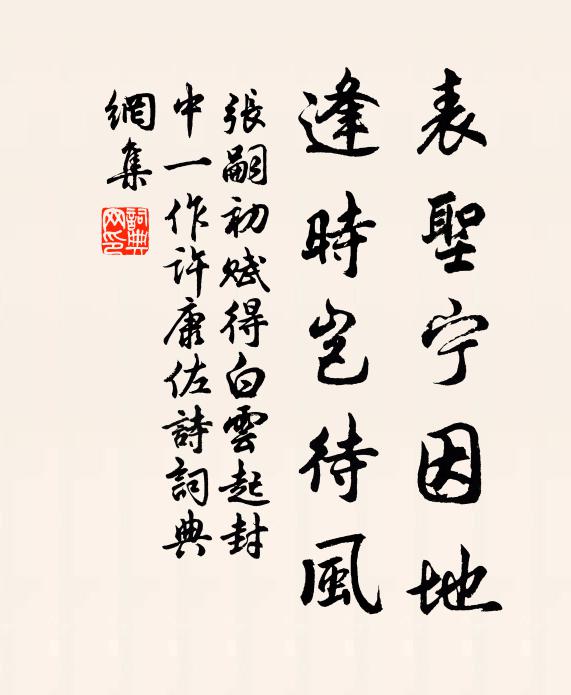 表聖宁因地
逢時岂待風
張嗣初赋得白雲起封
中一作許康佐詩詞典
網集
詞典网印